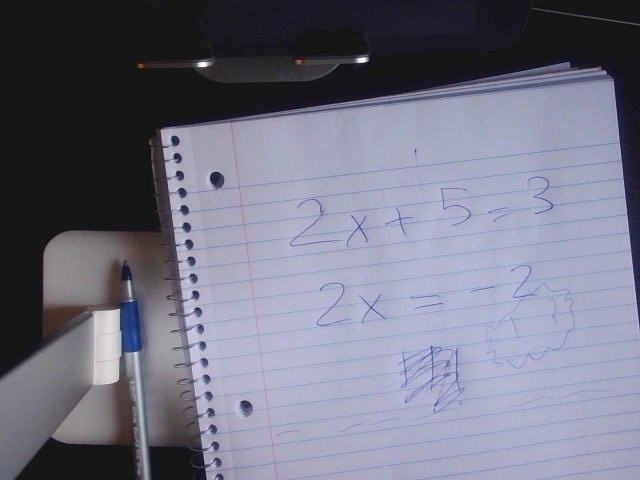 2x + 5 = 3
2x = -2